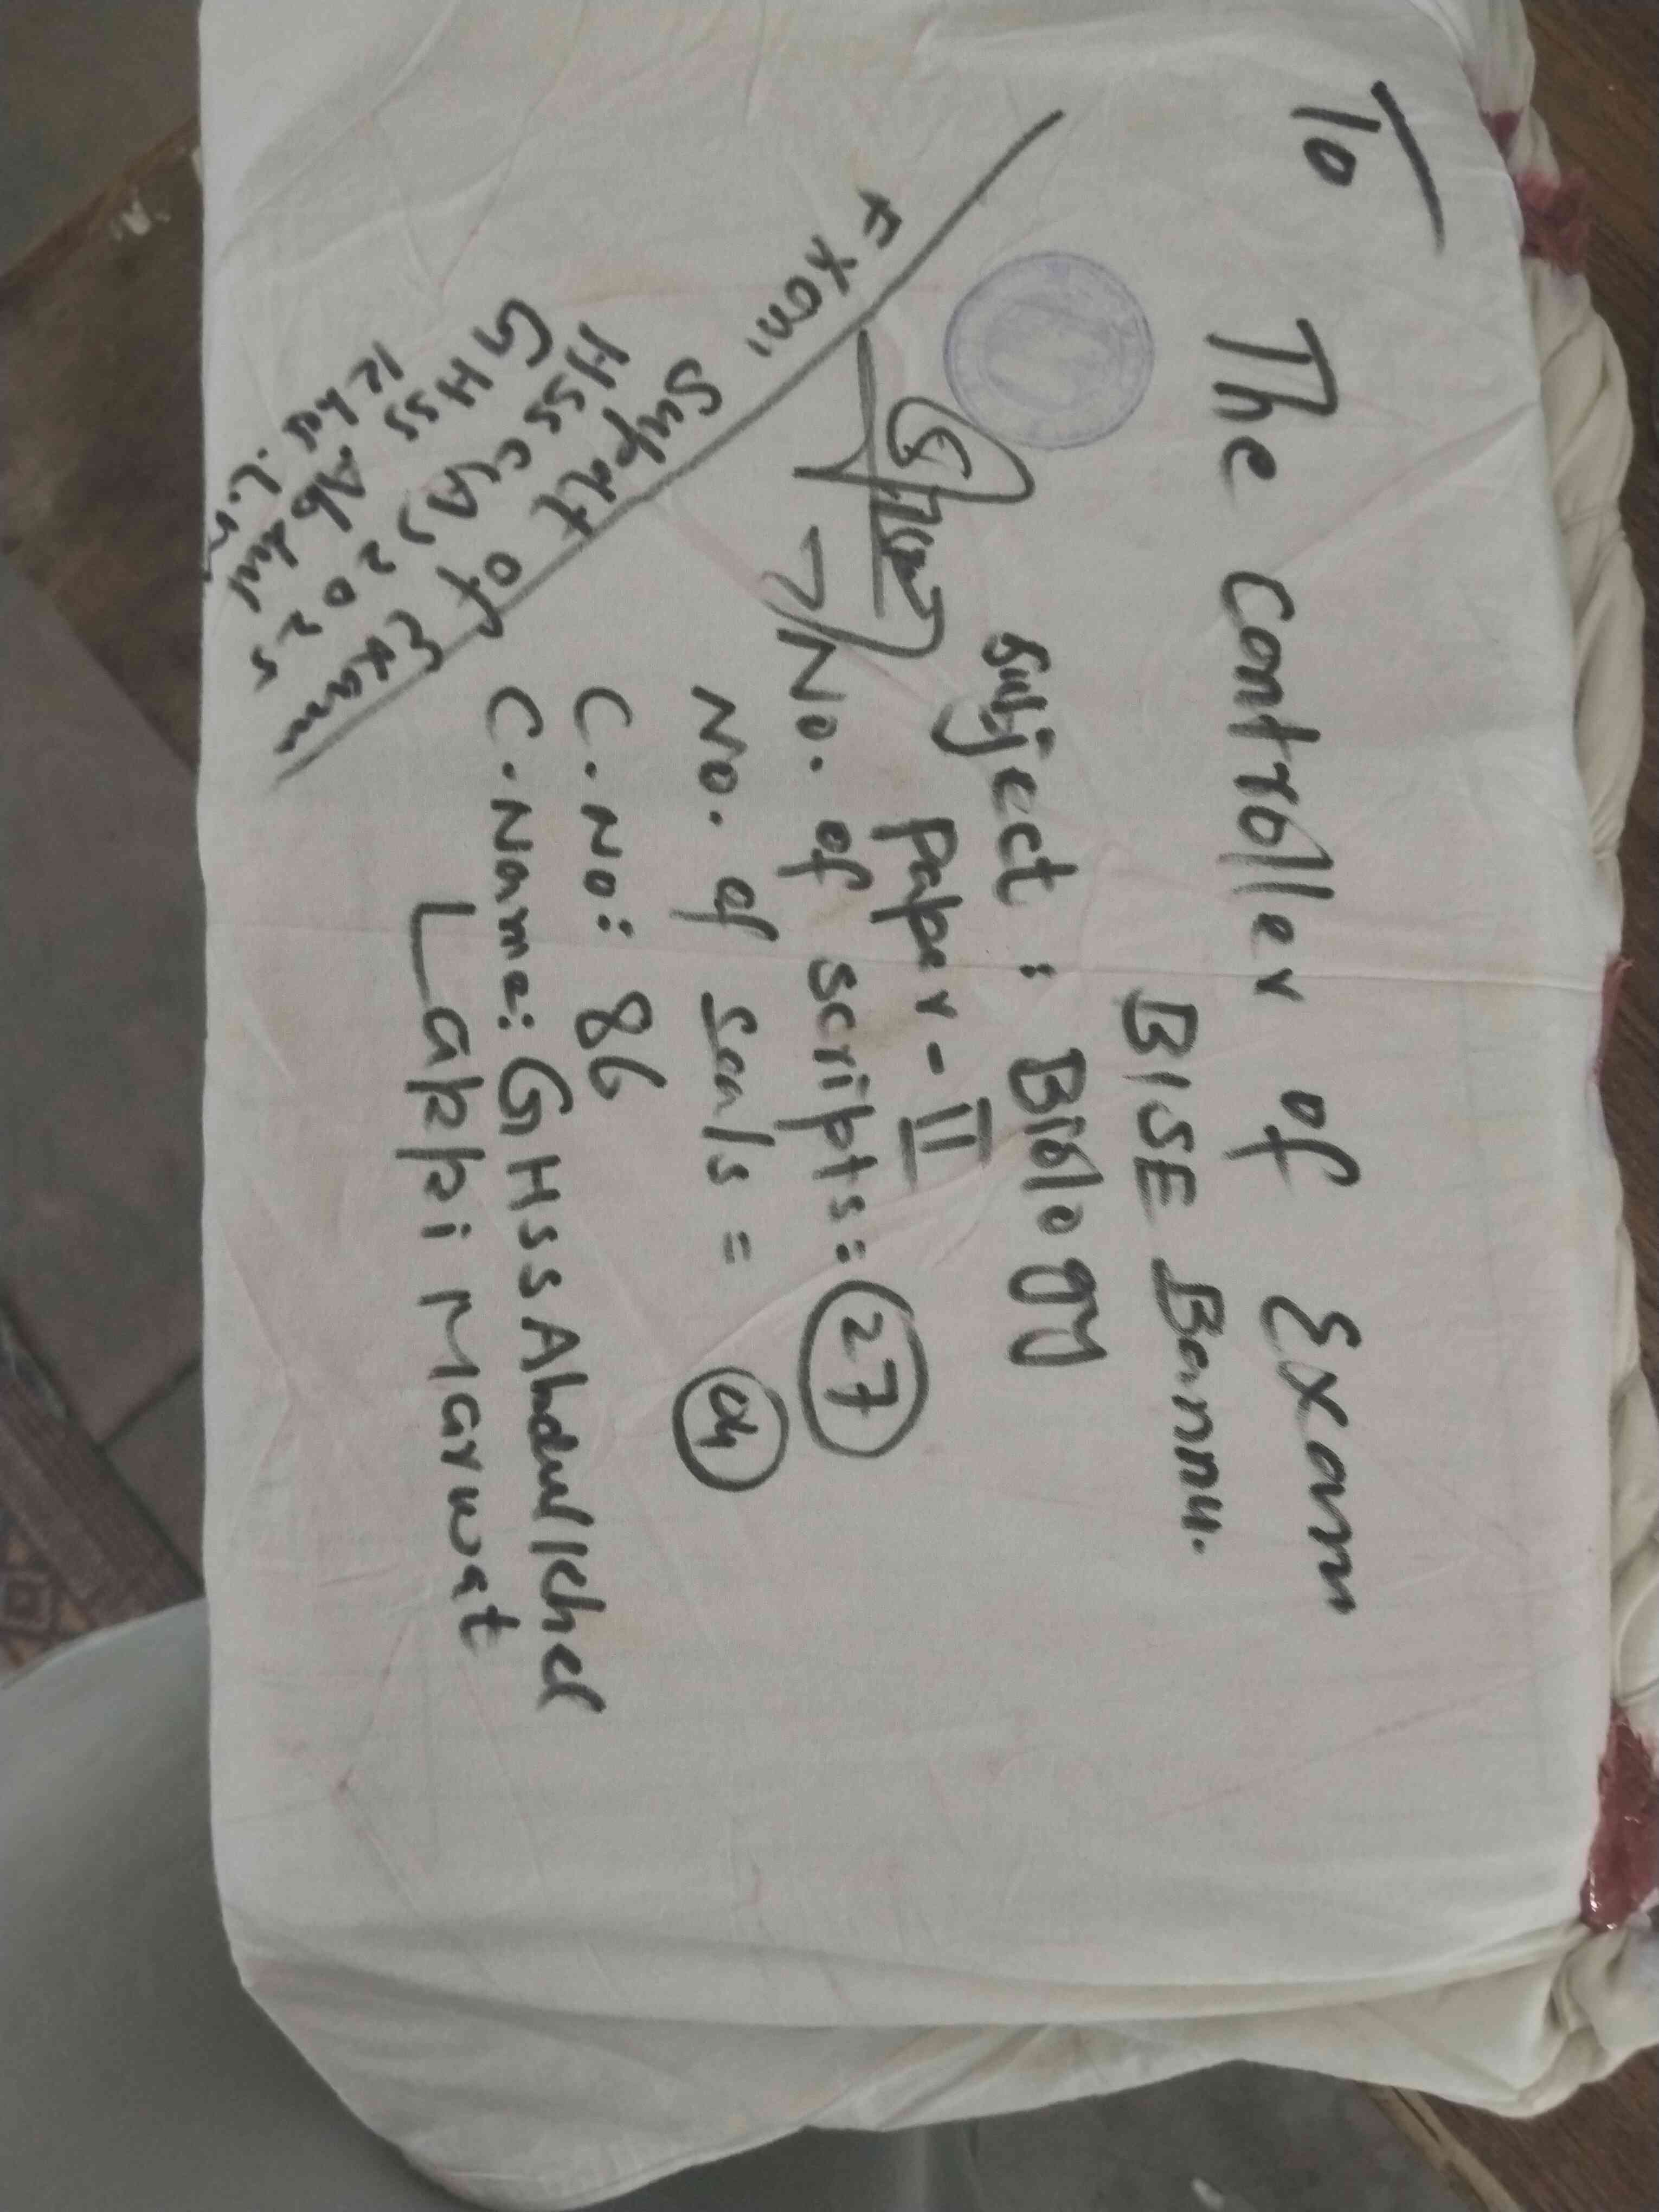 To
The Controller of Exam
BISE Bannu.
Subject : Biology
Paper - II
No. of scripts: 27
No. of Seals = 04
C. No: 86
C. Name: GHSS Abdul Khel
Lakki Marwat
From
Supdt of Exam
HSSC(A) 2025
GHSS Abdul
Khel